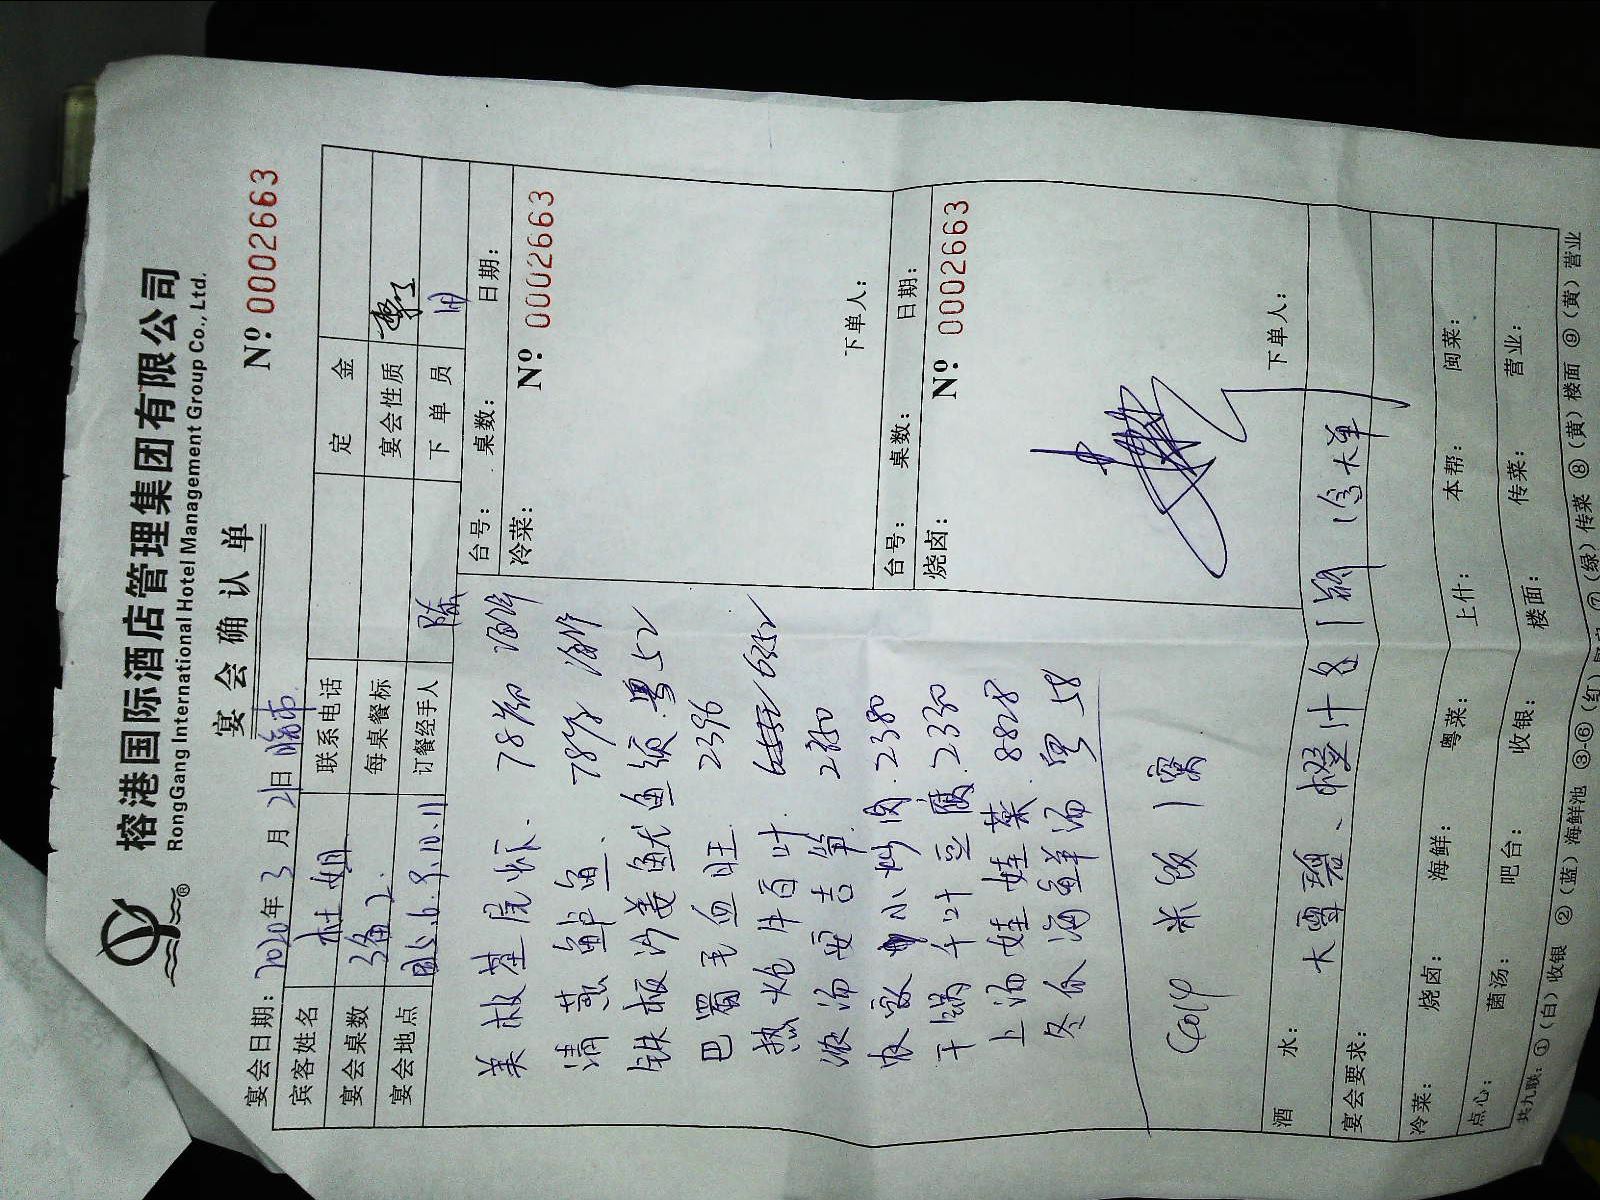 榕港国际酒店管理集团有限公司
RongGang International Hotel Management Group Co., Ltd.
宴会确认单
Nº 0002663
宴会日期：2020年3月21日 晚市
宾客姓名 杜姐 联系电话 定金
宴会桌数 3备2 每桌餐标 宴会性质
宴会地点 8.9.10.11 订餐经手人 陈 下单员
美极基尾虾. 78
清蒸鲈鱼. 78
铁板沙姜鱿鱼须. 粤52
巴蜀毛血旺 2396
热炝牛百叶
浓汤安吉笋
农家小炒肉. 2380
干锅千叶豆腐. 2330
上汤娃娃菜. 8828
冬瓜海鲜汤 粤58
米饭1窝
台号： 桌数： 日期：
冷菜：
Nº 0002663
下单人：
台号： 桌数： 日期：
烧卤：
Nº 0002663
下单人：
酒水： 大雪碧、橙汁各1
宴会要求：
冷菜： 烧卤： 海鲜： 粤菜： 上什： 本帮： 闽菜：
点心： 菌汤： 吧台： 收银： 楼面： 传菜： 营业：
共九联：①（白）收银 ②（蓝）海鲜池 ③-⑥（红） ⑦（绿）传菜 ⑧（黄）楼面 ⑨（黄）营业